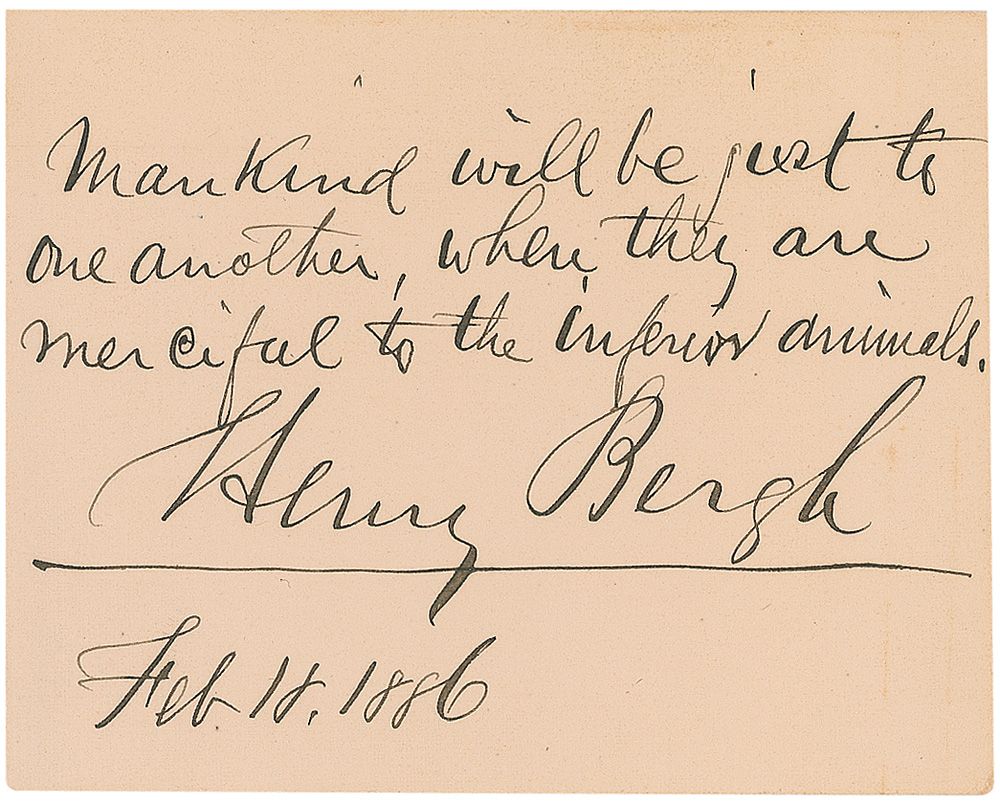 Mankind will be just to
one another, when they are
merciful to the inferior animals.
Henry Bergh
Feb 18. 1886